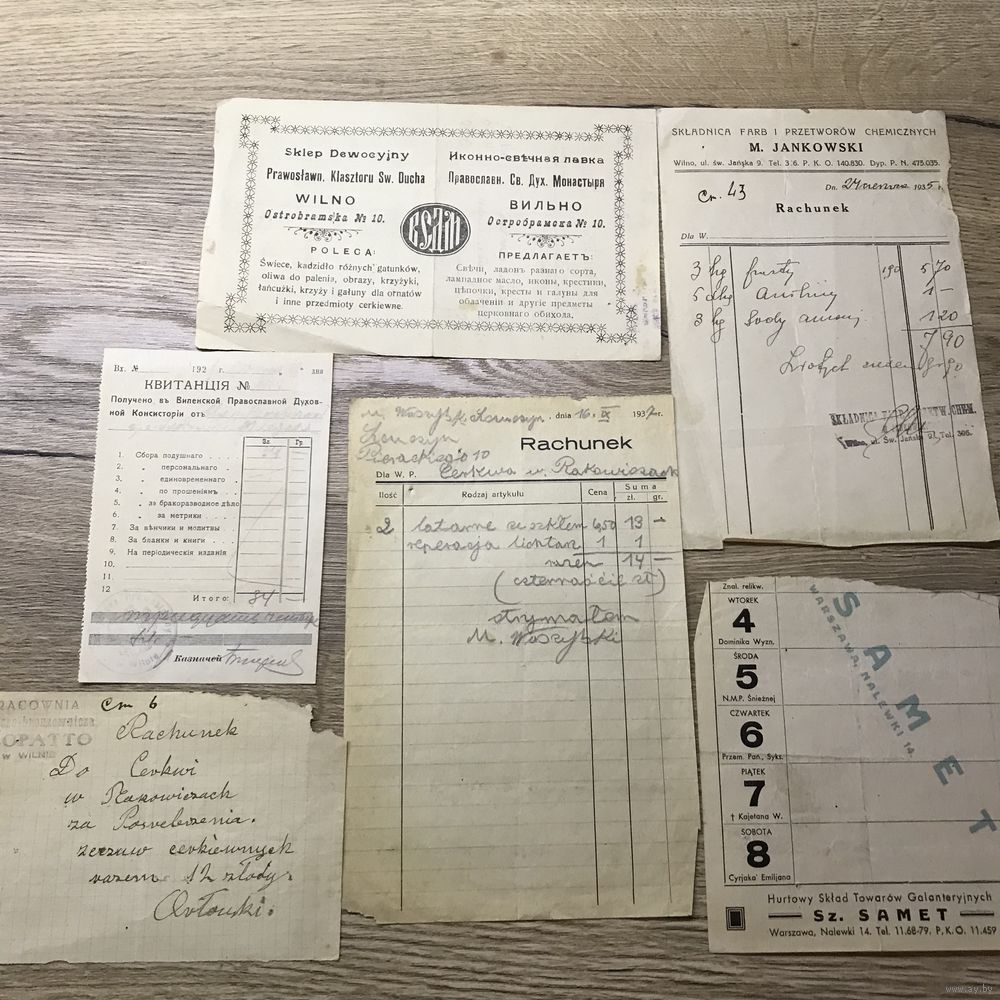 Sklep Dewocyjny
Prawosławn. Klasztoru Sw. Ducha
WILNO
Ostrobramska № 10.
POLECA:
Świece, kadzidło różnych gatunków,
oliwa do palenia, obrazy, krzyżyki,
łańcużki, krzyży i gałuny dla ornatów
i inne przedmioty cerkiewne.
Иконно-свѣчная лавка
Православн. Св. Дух. Монастыря
ВИЛЬНО
Остробрамска № 10.
ПРЕДЛАГАЕТЪ:
Свѣчи, ладонъ разнаго сорта,
лампадное масло, иконы, крестики,
цѣпочки, кресты и галуны для
облаченій и другіе предметы
церковнаго обихода.
SKŁADNICA FARB I PRZETWORÓW CHEMICZNYCH
M. JANKOWSKI
Wilno, ul. św. Jańska 9. Tel. 3/6. P. K. O. 140.830. Dyp. P. N. 475.035.
Cr. 43
Dn. 1935 r.
Rachunek
Dla W.
3 kg 190 5 70
5 1 —
3 kg Sody 1 20
7 90
Вх. № 192 г. дня
КВИТАНЦІЯ №
Получено въ Виленской Православной Духов-
ной Консисторіи отъ
Зл. Гр.
1. Сбора подушнаго
2. " персональнаго
3. " единовременнаго
4. " по прошеніямъ
5. " за бракоразводное дѣло
6. " за метрики
7. За вѣнчики и молитвы
8. За бланки и книги
9. На періодическія изданія
10.
11
12
Итого: 34 —
Казначей
M. Woszyski, dnia 16. IX 1937 r.
Rachunek
Dla W. P. Cerkwa w Rakowiszach
Ilość Rodzaj artykułu Cena Suma
zł. gr.
2 latarne ze szkłem 6,50 13 —
reperacja 1 1
razem 14 —
(czternaście zł)
otrzymałem
M. Woszyski
PRACOWNIA
ŁOPATTO
W WILNIE
Cm 6
Rachunek
Do Cerkwi
w Rakowiszach
za
cerkiewnych
razem 12 złoty.
Orłowski.
Znal. relikw.
WTOREK
4
Dominika Wyzn.
ŚRODA
5
N.M.P. Śnieżnej
CZWARTEK
6
Przem. Pań., Syks.
PIĄTEK
7
† Kajetana W.
SOBOTA
8
Cyrjaka Emiljana
SAMET
WARSZAWA, NALEWKI 14.
Hurtowy Skład Towarów Galanteryjnych
Sz. SAMET
Warszawa, Nalewki 14. Tel. 11.68-79. P.K.O. 11.459
www.ay.by